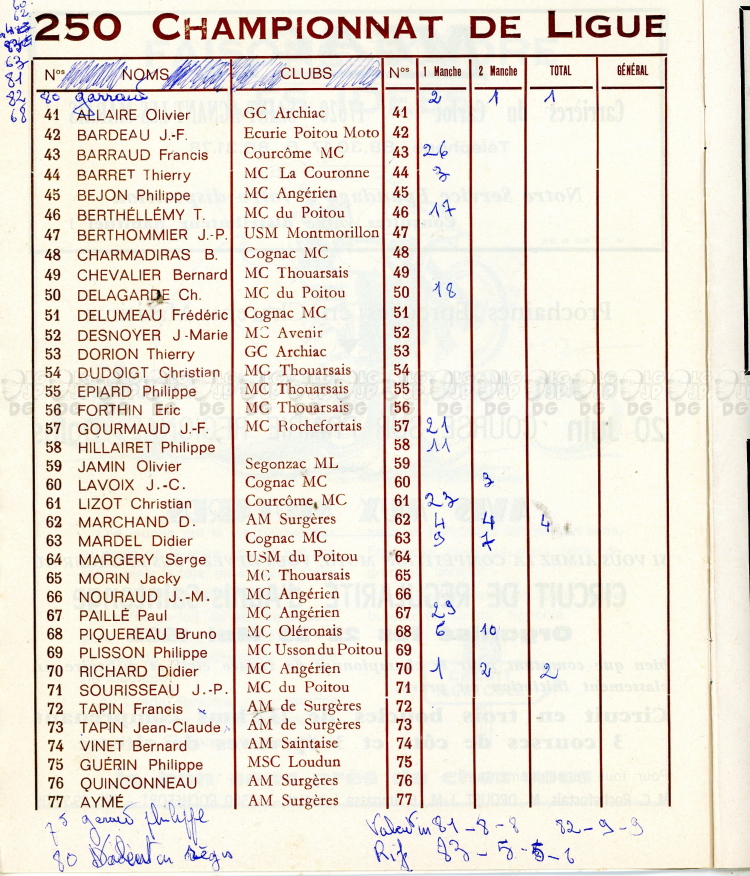 60
62
63
81
82
68
250 CHAMPIONNAT DE LIGUE
Nos NOMS CLUBS Nos 1 Manche 2 Manche TOTAL GÉNÉRAL
80 garraud 2 1 1
41 ALLAIRE Olivier GC Archiac 41
42 BARDEAU J.-F. Ecurie Poitou Moto 42
43 BARRAUD Francis Courcôme MC 43 26
44 BARRET Thierry MC La Couronne 44 3
45 BEJON Philippe MC Angérien 45
46 BERTHÉLLÉMY T. MC du Poitou 46 17
47 BERTHOMMIER J.-P. USM Montmorillon 47
48 CHARMADIRAS B. Cognac MC 48
49 CHEVALIER Bernard MC Thouarsais 49
50 DELAGARDE Ch. MC du Poitou 50 18
51 DELUMEAU Frédéric Cognac MC 51
52 DESNOYER J-Marie MC Avenir 52
53 DORION Thierry GC Archiac 53
54 DUDOIGT Christian MC Thouarsais 54
55 EPIARD Philippe MC Thouarsais 55
56 FORTHIN Eric MC Thouarsais 56
57 GOURMAUD J.-F. MC Rochefortais 57 21
58 HILLAIRET Philippe 58 11
59 JAMIN Olivier Segonzac ML 59
60 LAVOIX J.-C. Cognac MC 60 3
61 LIZOT Christian Courcôme MC 61 23
62 MARCHAND D. AM Surgères 62 4 4 4
63 MARDEL Didier Cognac MC 63 9 7
64 MARGERY Serge USM du Poitou 64
65 MORIN Jacky MC Thouarsais 65
66 NOURAUD J.-M. MC Angérien 66
67 PAILLÉ Paul MC Angérien 67 29
68 PIQUEREAU Bruno MC Oléronais 68 6 10
69 PLISSON Philippe MC Usson du Poitou 69
70 RICHARD Didier MC Angérien 70 1 2 2
71 SOURISSEAU J.-P. MC du Poitou 71
72 TAPIN Francis AM de Surgères 72
73 TAPIN Jean-Claude AM de Surgères 73
74 VINET Bernard AM Saintaise 74
75 GUÉRIN Philippe MSC Loudun 75
76 QUINCONNEAU AM Surgères 76
77 AYMÉ AM Surgères 77
philippe 81-8-8 82-9-9
80 83-5-5-6